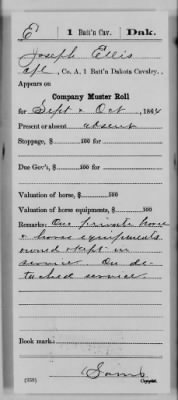 E 1 Batt'n Cav. Dak.
Joseph Ellis
Cpl, Co. A, 1 Batt'n Dakota Cavalry.
Appears on
Company Muster Roll
for Sept & Oct, 1864
Present or absent absent
Stoppage, $ 100 for
Due Gov't, $ 100 for
Valuation of horse, $ 100
Valuation of horse equipments, $ 100
Remarks: One private horse
& horse equipments
owned & kept in
service. On de-
tached service
Book mark:
(358)
Copyist.